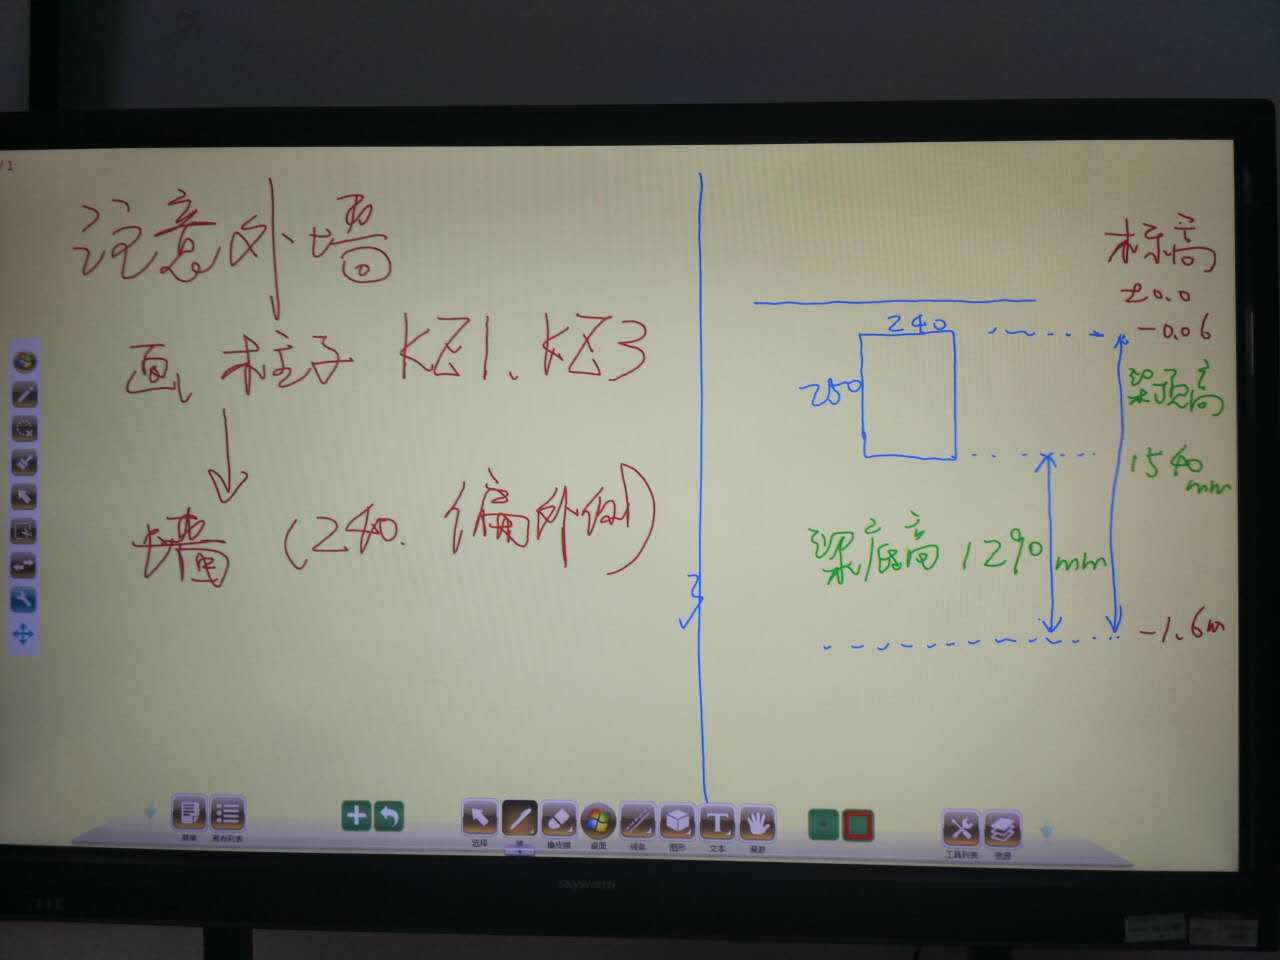 /1
注意外墙
画柱子 KZ1、KZ3
墙 (240. 偏外侧)
标高
±0.0
240
-0.06
250
梁顶高
1540
mm
梁底高 1290 mm
-1.6m
选择
橡皮擦
桌面
线条
图形
文本
漫游
工具列表
资源
Skyworth